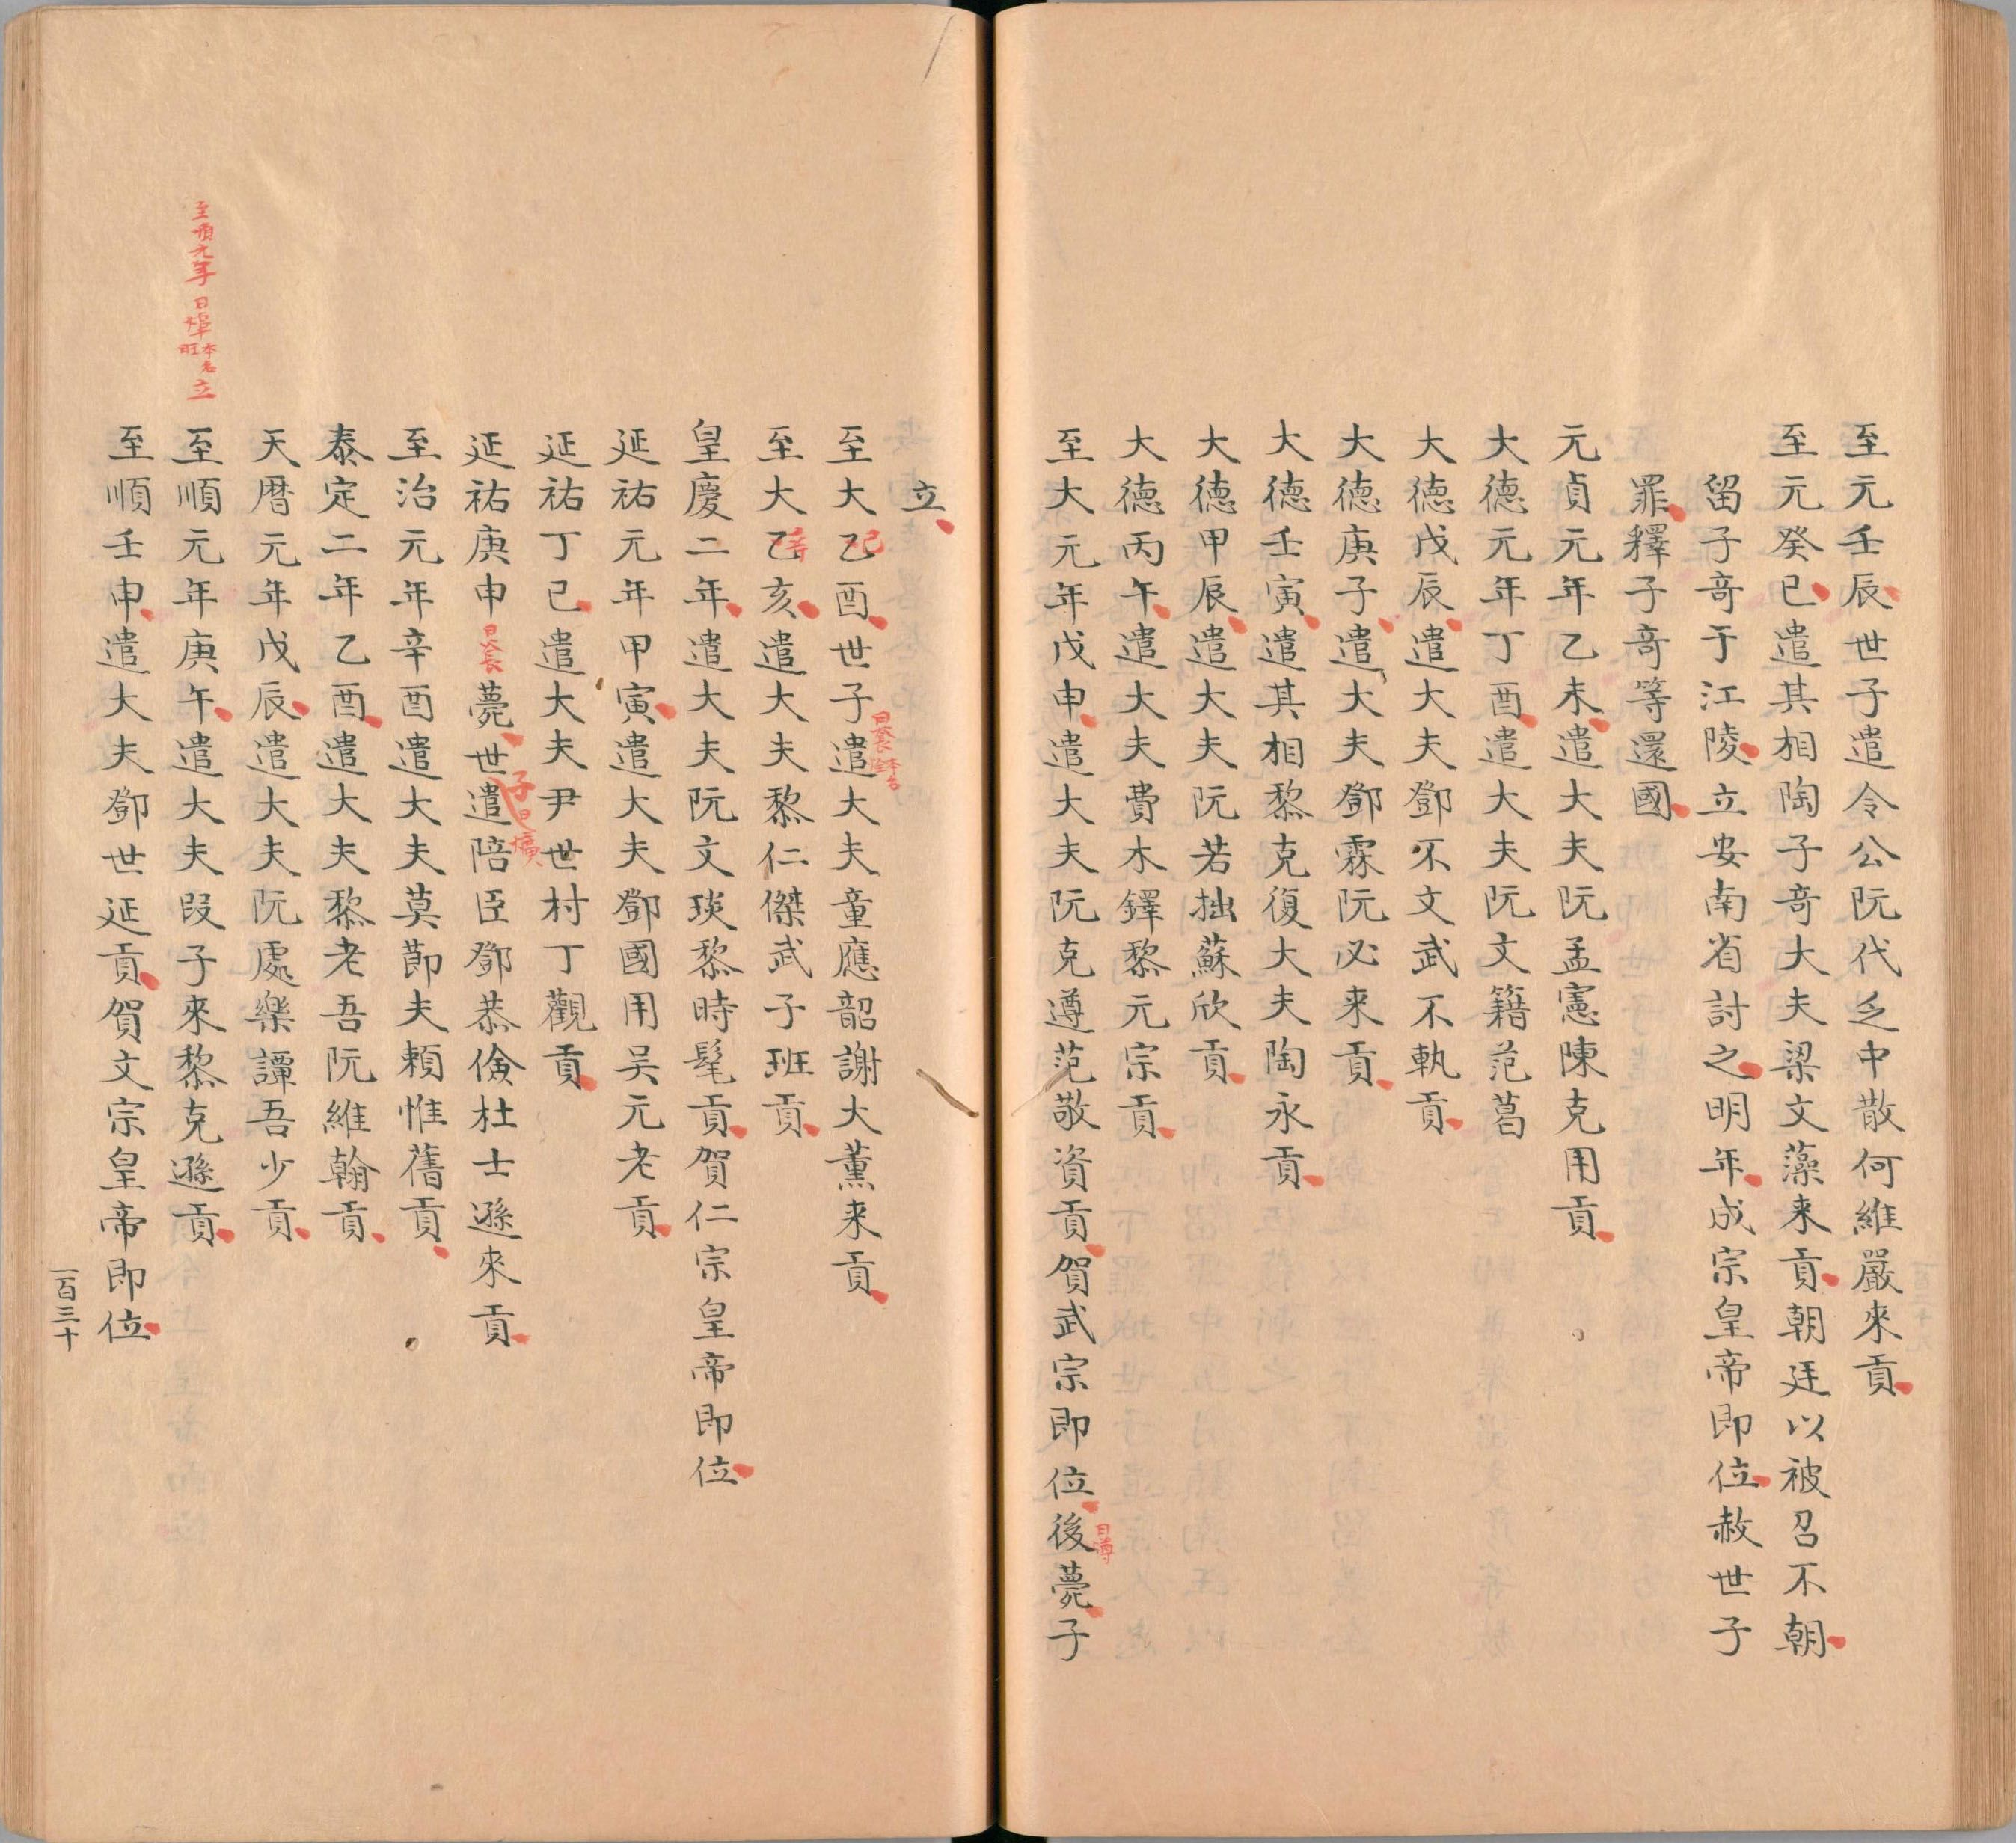 至元壬辰世子遣令公阮代乏中散何維嚴來貢
至元癸巳遣其相陶子奇大夫梁文藻来貢朝廷以被召不朝
留子竒于江陵立安南省討之明年成宗皇帝即位赦世子
罪釋子竒等還國
元貞元年乙未遣大夫阮孟憲陳克用貢
大德元年丁酉遣大夫阮文籍范葛
大德戊辰遣大夫鄧不文武不執貢
大德庚子遣大夫鄧霖阮必来貢
大德壬寅遣其相黎克復大夫陶永貢
大德甲辰遣大夫阮若拙蘇欣貢
大德丙午遣大夫費木鐸黎元宗貢
至大元年戊申遣大夫阮克遵范敬資貢賀武宗即位後薨子
日㷃
立
至大乙酉世子遣大夫童應韶謝大薫来貢
己
至大乙亥遣大夫黎仁傑武子班貢
皇慶二年遣大夫阮文琰黎時髦貢賀仁宗皇帝即位
延祐元年甲寅遣大夫鄧國用吴元老貢
延祐丁巳遣大夫尹世村丁觀貢
延祐庚申薨世遣陪臣鄧恭儉杜士遜來貢
子日爌
至治元年辛酉遣大夫莫節夫頼惟舊貢
泰定二年乙酉遣大夫黎老吾阮維翰貢
天曆元年戊辰遣大夫阮處樂譚吾少貢
至順元年日㷆本名旺立
至順元年庚午遣大夫段子來黎克遜貢
至順壬申遣大夫鄧世延貢賀文宗皇帝即位
一百三十